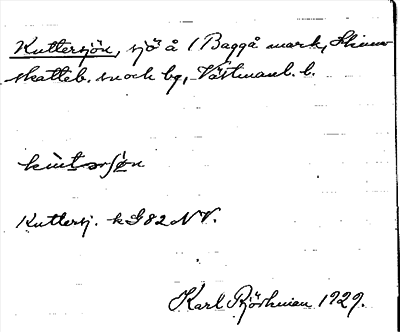 Kuttersjön, sjö å 1 Baggå mark, Skinn-
skatteb. sn och bg, Västmanl. l.
Kuttersj. kG 82 NV.
Karl Björkman 1929.